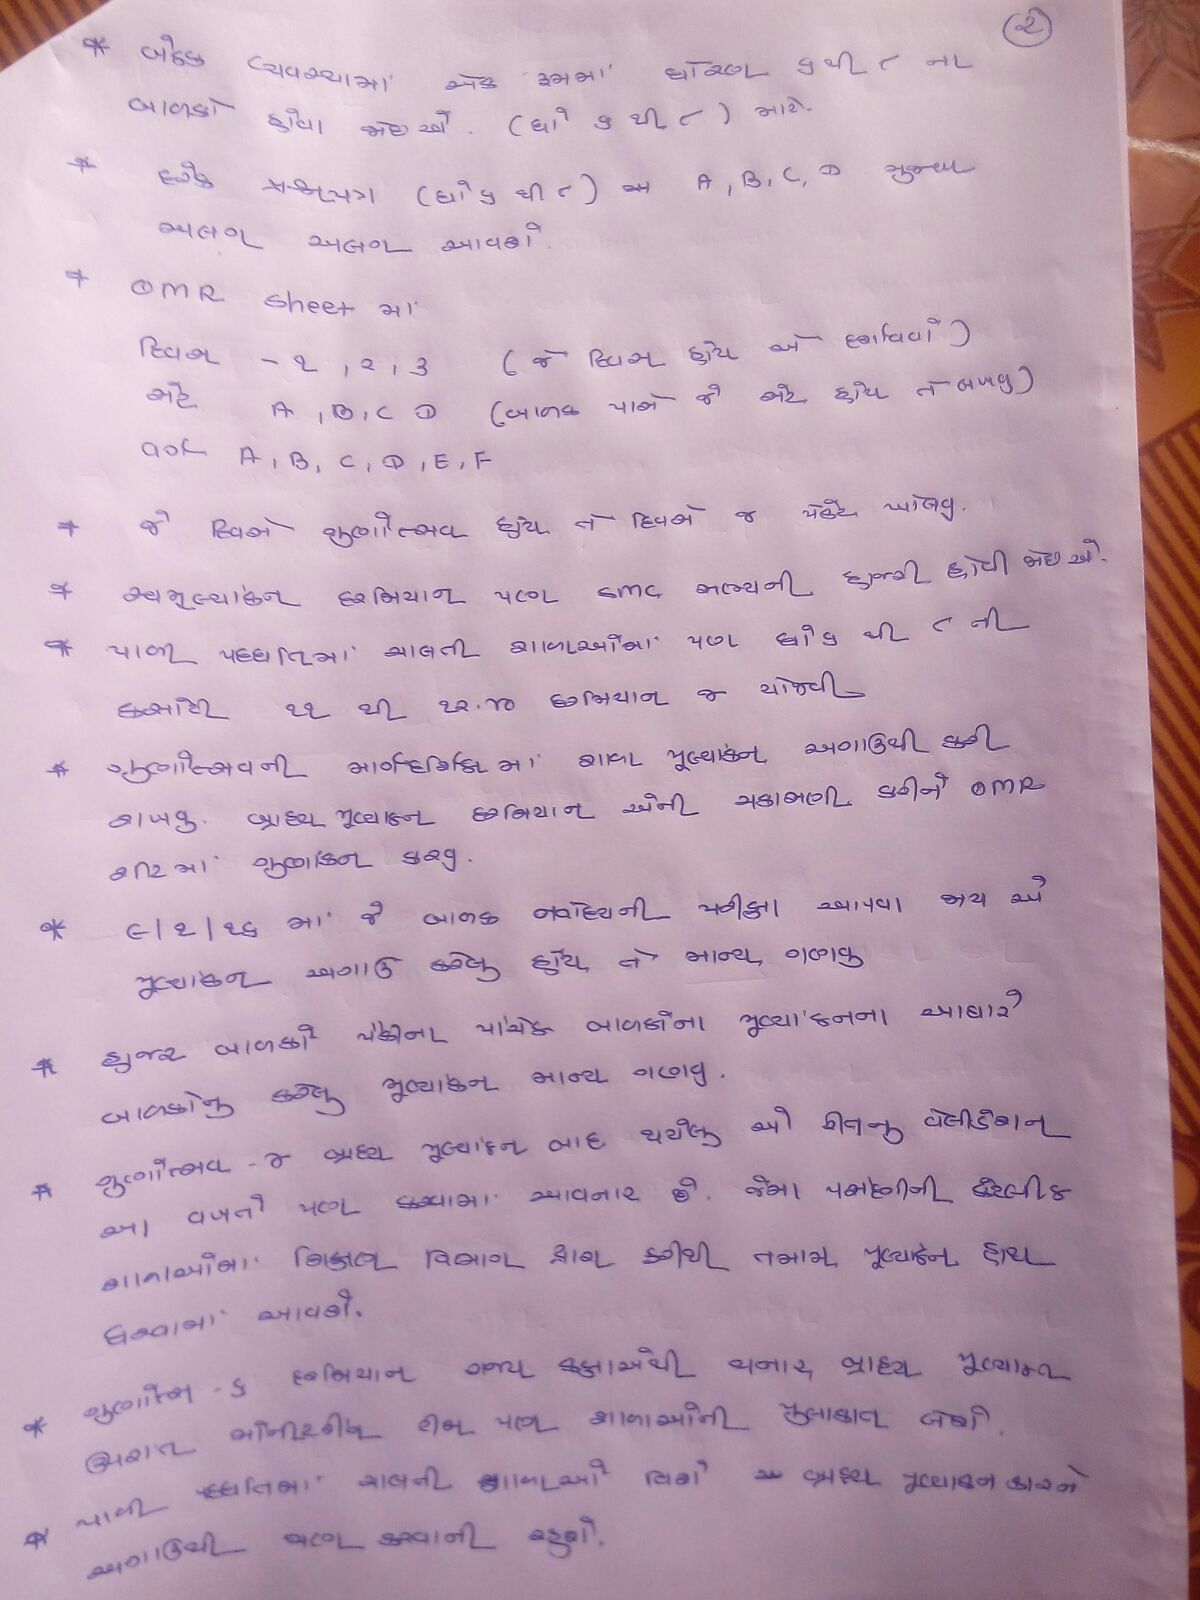 ૨
* બેઠક વ્યવસ્થામાં એક રૂમમાં ધોરણ ૬ થી ૮ ના
બાળકો હોવા જોઇએ. (ધો ૬ થી ૮) માટે.
* દરેક પ્રશ્નપત્ર (ધો ૬ થી ૮) A, B, C, D મુજબ
અલગ અલગ આવશે.
* OMR sheet માં
દિવસ - ૧, ૨, ૩ (જે દિવસ હોય એ દર્શાવવો)
સેટ A, B, C D (બાળક પાસે જે સેટ હોય તે લખવુ)
વર્ગ A, B, C, D, E, F
* જે દિવસે ગુણોત્સવ હોય તે દિવસે જ પેકેટ ખોલવુ.
* સ્વમૂલ્યાંકન દરમિયાન પણ SMC સભ્યની હાજરી હોવી જોઇએ.
* પાળી પધ્ધતિમાં ચાલતી શાળાઓમાં પણ ધો ૬ થી ૮ ની
કસોટી ૧૧ થી ૧૨.૪૦ દરમિયાન જ યોજવી
* ગુણોત્સવની માર્ગદર્શિકામાં શાળા મૂલ્યાંકન અગાઉથી કરી
રાખવુ. બાહ્ય મૂલ્યાકન દરમિયાન એની ચકાસણી કરીને OMR
શીટમાં ગુણાંકન કરવુ.
* ૯/૧/૧૬ માં જે બાળક નવોદયની પરીક્ષા આપવા જાય એ
મૂલ્યાંકન અગાઉ કરેલુ હોય તે માન્ય ગણવુ
* હાજર બાળકો પૈકીના પાંચેક બાળકોના મૂલ્યાંકનના આધારે
બાળકોનુ કરેલુ મૂલ્યાંકન માન્ય ગણવુ.
* ગુણોત્સવ - ૪ બાહ્ય મૂલ્યાંકન બાદ થયેલુ એ રીતનુ વેલીડેશન
આ વખતે પણ કરવામાં આવનાર છે. જેમા પસંદગીની કેટલીક
શાળાઓમાં શિક્ષણ વિભાગ દ્વારા ફરીથી તમામ મૂલ્યાકંન હાથ
ધરવામાં આવશે.
* ગુણોત્સ - ૬ દરમિયાન રાજ્ય કક્ષાએથી થનાર બાહ્ય મૂલ્યાકન
ઉપરાંત મોનીટરીંગ ટીમ પણ શાળાઓની મુલાકાત લેશે.
* પાળી પધ્ધતિમાં ચાલતી શાળાઓ વિશે બાહ્ય મૂલ્યાકનકારને
અગાઉથી જાણ કરવાની રહેશે.